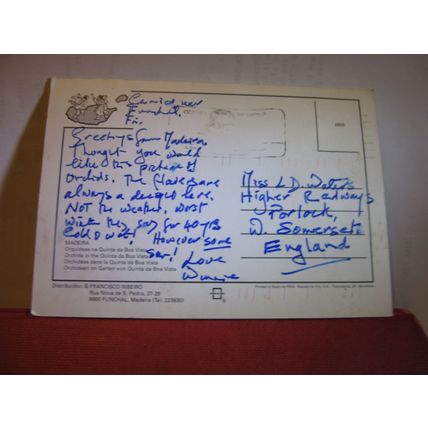 Funchal.
Fri.
Greetings from Madeira.
Thought you would
like this picture of
Orchids. The flowers are
always a delight here.
Not the weather. Worst
Winter they say for 40 yrs
Cold & wet! However some
Sun!
Love
Winnie
Miss L D. Waters
Higher Redways
Porlock,
W. Somerset
England
MADEIRA
Orquídeas na Quinta da Boa Vista
Orchids in the Quinta da Boa Vista
Orchidées dans la Quinta da Boa Vista
Orchideen im Garten von Quinta da Boa Vista
Distribuidor: © FRANCISCO RIBEIRO
Rua Nova de S. Pedro, 27-29
9000 FUNCHAL, Madeira (Tel. 223930)